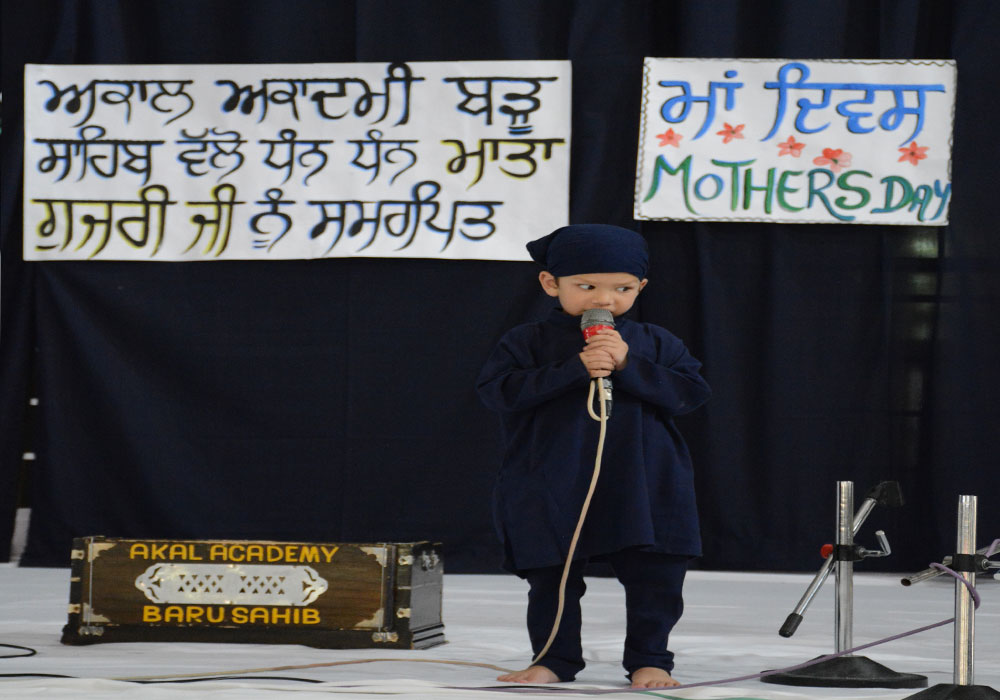 ਅਕਾਲ ਅਕਾਦਮੀ ਬੜੂ
ਸਾਹਿਬ ਵੱਲੋ ਧੰਨ ਧੰਨ ਮਾਤਾ
ਗੁਜਰੀ ਜੀ ਨੂੰ ਸਮਰਪਿਤ
ਮਾਂ ਦਿਵਸ
MOTHERS DAY
AKAL ACADEMY
BARU SAHIB